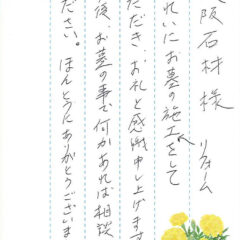 大阪石材様
リフォーム
れいにお墓の施工をして
ただき、お礼と感謝申し上げます
後、お墓の事で何かあれば相談
ださい。ほんとうにありがとうございま